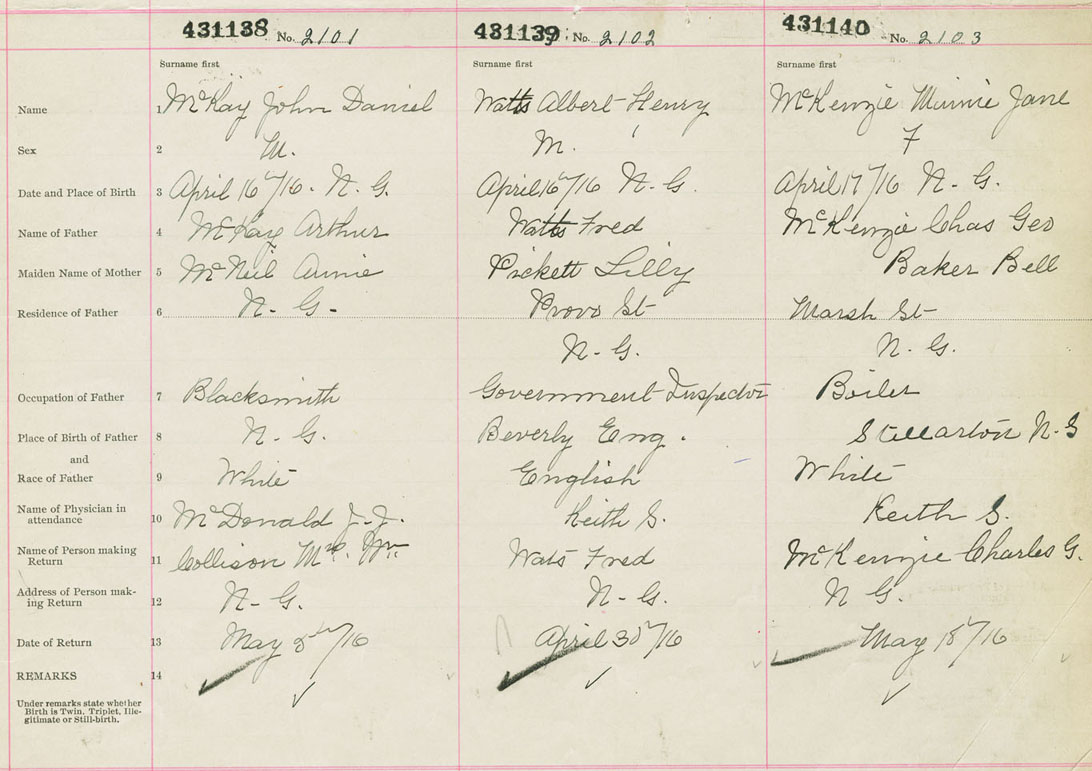 431138 No. 2101 431139 No. 2102 431140 No. 2103
Surname first Surname first Surname first
Name 1 McKay John Daniel Watts Albert Henry McKenzie Minnie Jane
Sex 2 M. M. F
Date and Place of Birth 3 April 16th/16. N. G. April 16th/16 N. G. April 17th/16 N. G.
Name of Father 4 McKay Arthur Watts Fred McKenzie Chas Geo
Maiden Name of Mother 5 McNeil Annie Pickett Lilly Baker Bell
Residence of Father 6 N. G. Provo St Marsh St
N. G. N. G.
Occupation of Father 7 Blacksmith Government Inspector Boiler
Place of Birth of Father 8 N. G. Beverly Eng. Stellarton N. S
and
Race of Father 9 White English White
Name of Physician in
attendance 10 McDonald J. J. Keith S. Keith S.
Name of Person making
Return 11 Collison Mrs. Wm Wats Fred McKenzie Charles G.
Address of Person mak-
ing Return 12 N. G. N. G. N G.
Date of Return 13 May /16 April 30th/16 May /16
REMARKS 14
Under remarks state whether
Birth is Twin, Triplet, Ille-
gitimate or Still-birth.